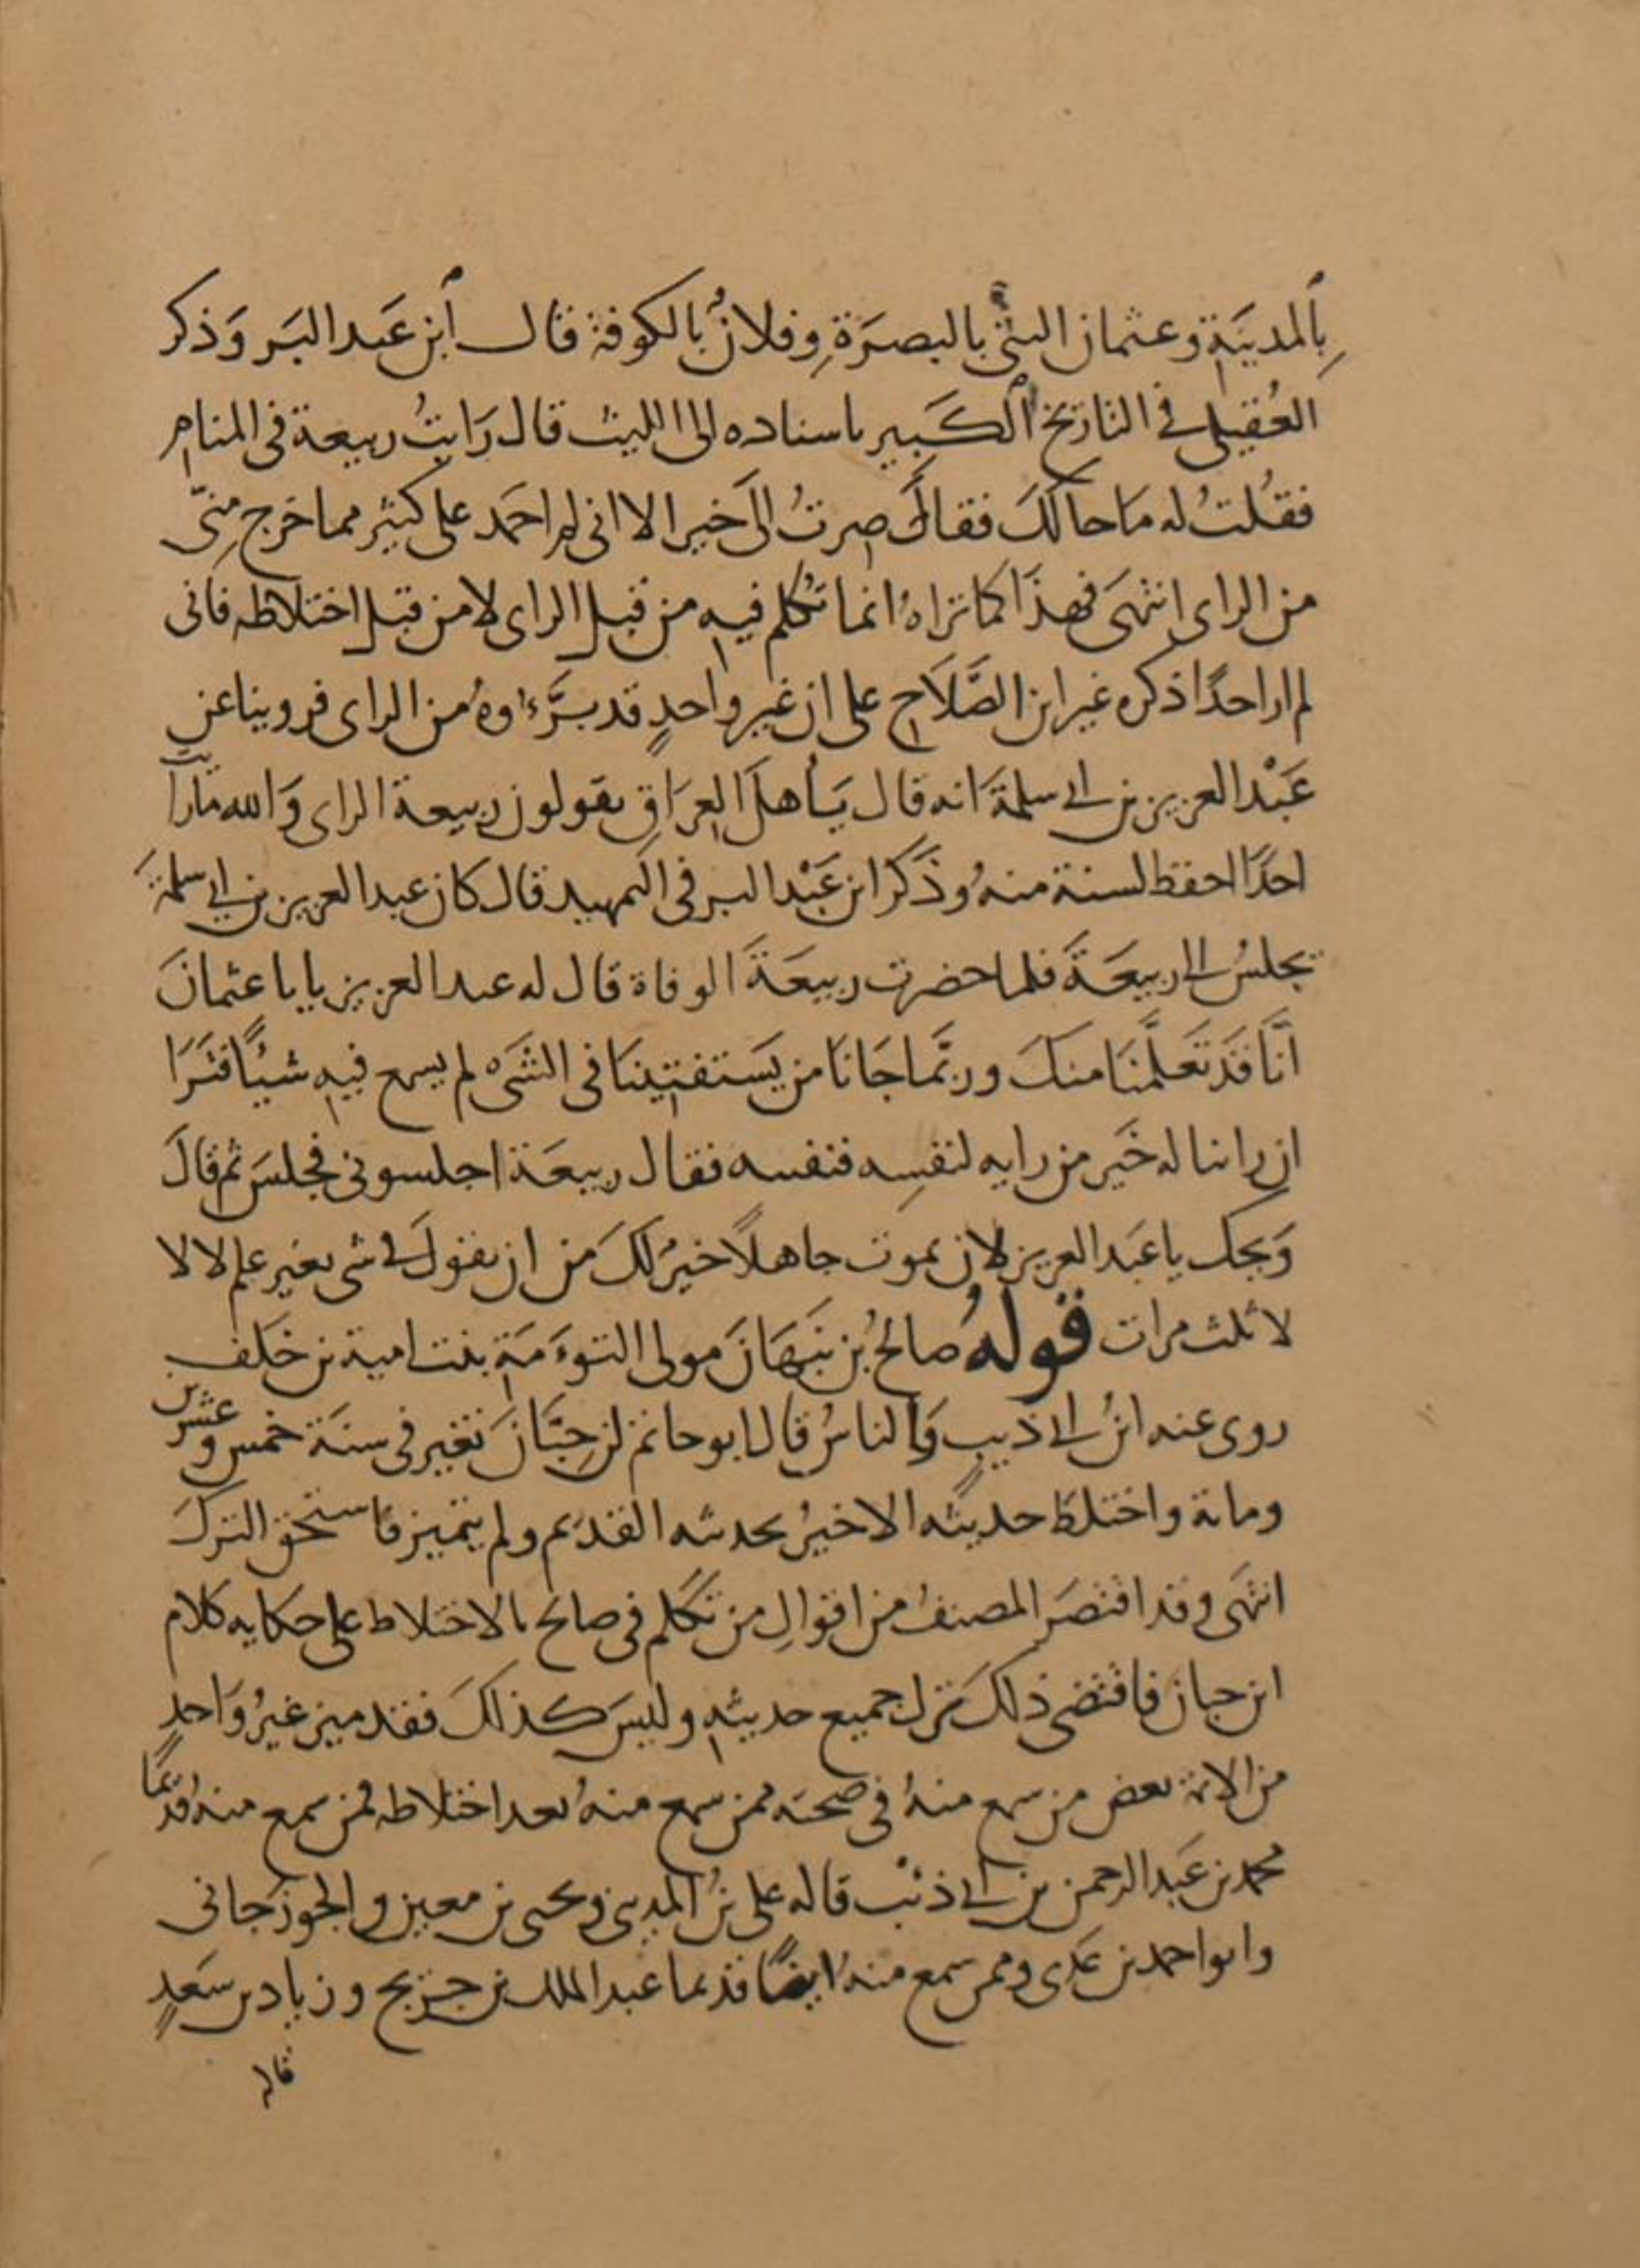 بالمدينة وعثمان البتي بالبصرة وفلان بالكوفة قال ابن عبد البر وذكر
العقيلي في التاريخ الكبير باسناده الى الليث قال رايت ربيعة في المنام
فقلت له ما حالك فقال صرت الى خير الا اني لم احمد على كثير مما خرج مني
من الراى انتهى فهذا كما تراه انما تكلم فيه من قبل الراى لا من قبل اختلاطه فاني
لم ار احدا ذكره غير ابن الصلاح على ان غير واحد قد برءاوه من الراى فروينا عن
عبد العزيز بن ابي سلمة انه قال يا اهل العراق تقولون ربيعة الراى والله ما رايت
احدا احفظ لسنة منه وذكر ابن عبد البر في التمهيد قال كان عبد العزيز بن ابي سلمة
يجلس الى ربيعة فلما حضرت ربيعة الوفاة قال له عبد العزيز يابا عثمان
انا قد تعلمنا منك وربما جانا من يستفتينا في الشيء لم يسمع فيه شيئا فترا
ان راينا له خير من رايه لنفسه فنفسه فقال ربيعة اجلسوني فجلس ثم قال
ويحك يا عبد العزيز لان تموت جاهلا خير لك من ان تقول في شي بغير علم لا لا
لا ثلث مرات قوله صالح بن نبهان مولى التوءمة بنت امية بن خلف
روى عنه ابن ابي ذيب والناس قال ابو حاتم بن حبان تغير في سنة خمس وعشرين
وماىة واختلط حديثه الاخير بحديثه القديم ولم يتميز فاستحق الترك
انتهى وقد اقتصر المصنف من اقوال من تكلم في صالح بالاختلاط على حكايه كلام
ابن حبان فاقتضى ذلك ترك جميع حديثه وليس كذلك فقد ميز غير واحد
من الائمة بعض من سمع منه في صحته ممن سمع منه بعد اختلاطه فمن سمع منه قديما
محمد بن عبد الرحمن بن ابي ذئب قاله على بن المديني ويحيى بن معين والجوزجاني
وابو احمد بن عدى وممن سمع منه ايضا قديما عبد الملك بن جريج وزياد بن سعد
قاله